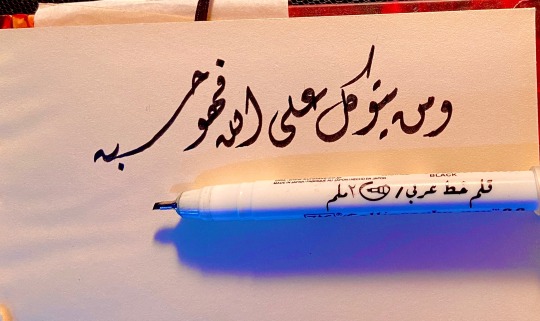 ومن يتوكل على الله فهو حسبه
BLACK
قلم خط عربي / ٢ ملم